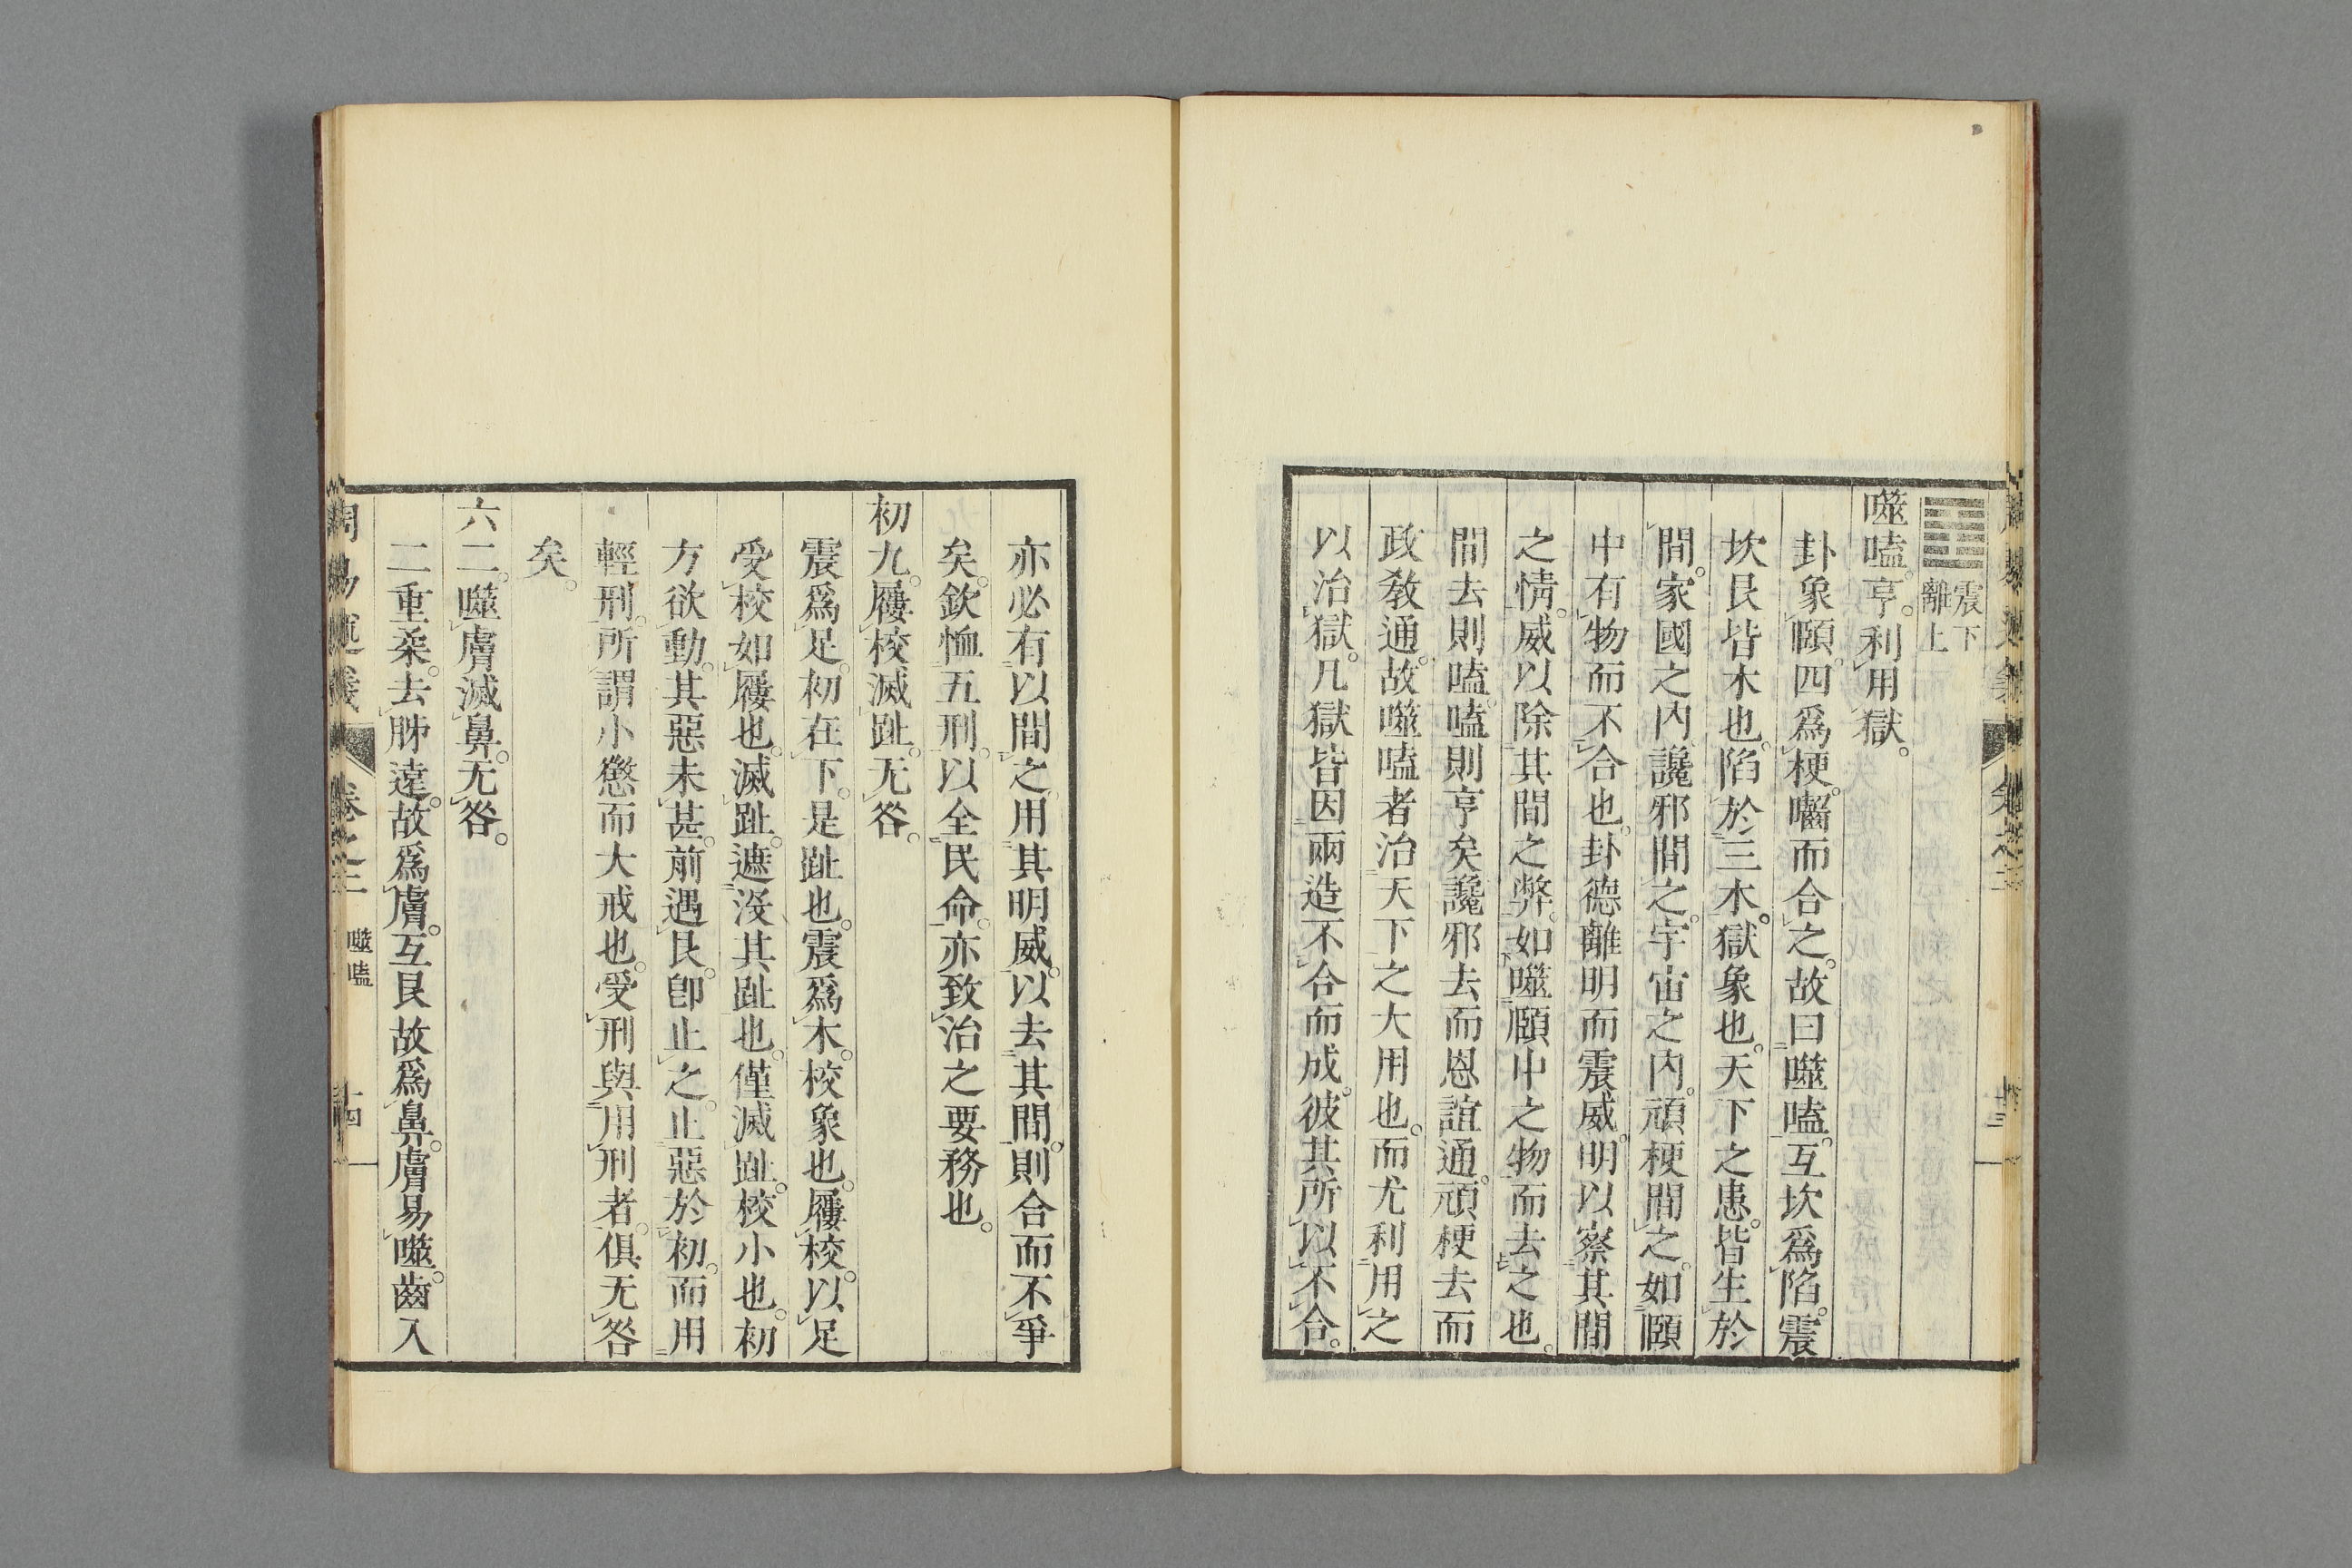 震下
離上
噬嗑。亨。利用獄。
卦象頤。四爲梗。囓而合之。故曰噬嗑。互坎爲陷。震
坎艮皆木也。陷於三木。獄象也。天下之患。皆生於
間。家國之内。讒邪間之。宇宙之内。頑梗間之。如頤
中有物而不合也。卦德離明而震威。明以察其間
之情。威以除其間之弊。如噬頤中之物而去之也。
間去則嗑。嗑則亨矣。讒邪去而恩誼通。頑梗去而
政敎通。故噬嗑者治天下之大用也。而尤利用之
以治獄。凡獄皆因兩造不合而成。彼其所以不合。
亦必有以間之。用其明威。以去其間。則合而不爭
矣。欽恤五刑。以全民命。亦致治之要務也。
初九。屨校滅趾。无咎。
震爲足。初在下。是趾也。震爲木。校象也。屨校。以足
受校如屨也。滅趾。遮沒其趾也。僅滅趾。校小也。初
方欲動。其惡未甚。前遇艮。卽止之。止惡於初。而用
輕刑。所謂小懲而大戒也。受刑與用刑者。俱无咎
矣。
六二。噬膚滅鼻。无咎。
二重柔。去肺遠。故爲膚。互艮故爲鼻。膚易噬。齒入
周易述義 卷之三 噬嗑 十四